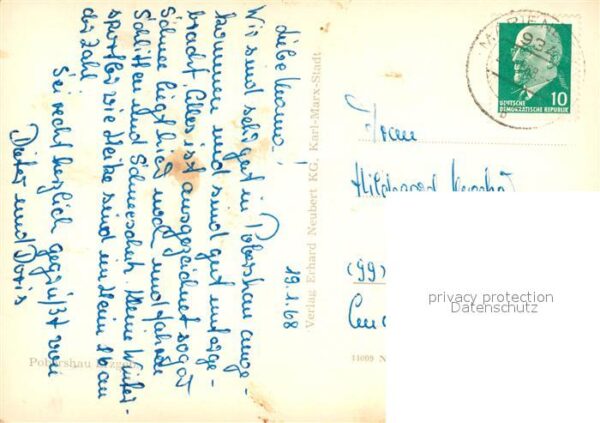 19.1.68
Liebe Mama!
Wir sind sehr gut in Pobershau ange-
kommen und sind gut unterge-
bracht. Alles ist ausgezeichnet sogar
Schnee liegt hier noch und fahren
Schlitten und Schneeschuh. Keine Winter-
sportler wie Heike sind im Heim 16 an
der Zahl.
Sei recht herzlich gegrüßt von
Dieter und Doris
Pobershau Erzgeb.
Verlag Erhard Neubert KG, Karl-Marx-Stadt
MARIEN
934
DEUTSCHE
DEMOKRATISCHE REPUBLIK
10
Frau
Hildegard
(99)
privacy protection
Datenschutz
11009 N